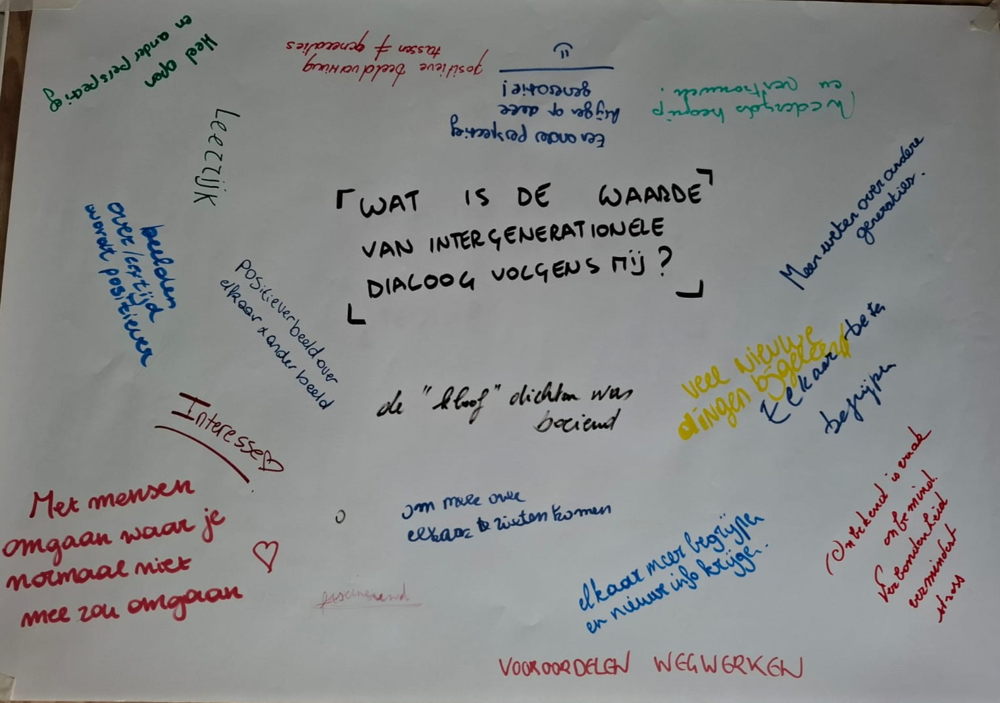 Heel open
en ander perspectief
positieve beeldvorming
tussen ≠ generaties
Een ander perspectief
krijgen op deze
generatie!
Wederzijds begrip
en vertrouwen.
Leerrijk
「WAT IS DE WAARDE
VAN INTERGENERATIONELE
DIALOOG VOLGENS MIJ?
Meer weten over andere
generaties.
beelden
over leeftijd
wordt positiever
Positiever beeld over
elkaar & ander beeld
veel nieuwe
dingen bijgeleerd
Elkaar beter
begrijpen
de "kloof" dichten was
boeiend
Interesse♡
Met mensen
omgaan waar je
normaal niet
mee zou omgaan ♡
om meer over
elkaar te weten komen
elkaar meer begrijpen
en nieuwe info krijgen.
Onbekend is vaak
onbemind.
Verbondenheid
vermindert
stress
VOOROORDELEN WEGWERKEN